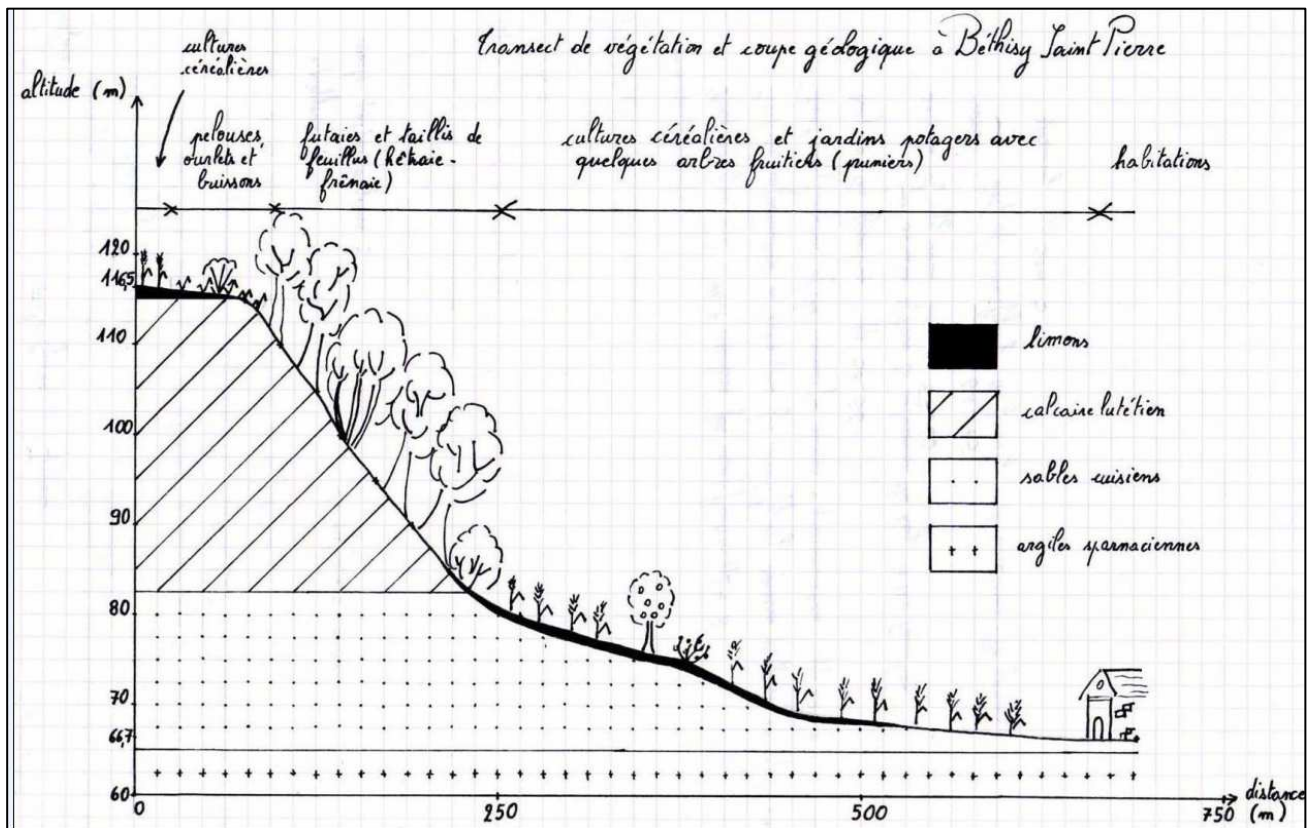 Transect de végétation et coupe géologique à Béthisy Saint Pierre
cultures
céréalières
altitude (m)
pelouses,
ourlets et
buissons
futaies et taillis de
feuillus (hêtraie-
frênaie)
cultures céréalières et jardins potagers avec
quelques arbres fruitiers (pruniers)
habitations
120
116,5
110
100
90
80
70
66,7
60
limons
calcaire lutétien
sables cuisiens
argiles sparnaciennes
0
250
500
750
distance
(m)